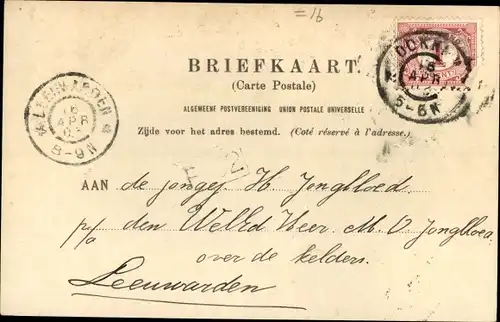 =16
DOKKUM
16
APR
5-6N
BRIEFKAART.
(Carte Postale)
LEEUWARDEN
16
APR
03
8-9N
ALGEMEENE POSTVEREENIGING UNION POSTALE UNIVERSELLE
Zijde voor het adres bestemd. (Coté réservé à l'adresse.)
AAN de jongej H. Jongbloed
p/a den WelEd Heer M. D. Jongbloed
over de kelders.
Leeuwarden